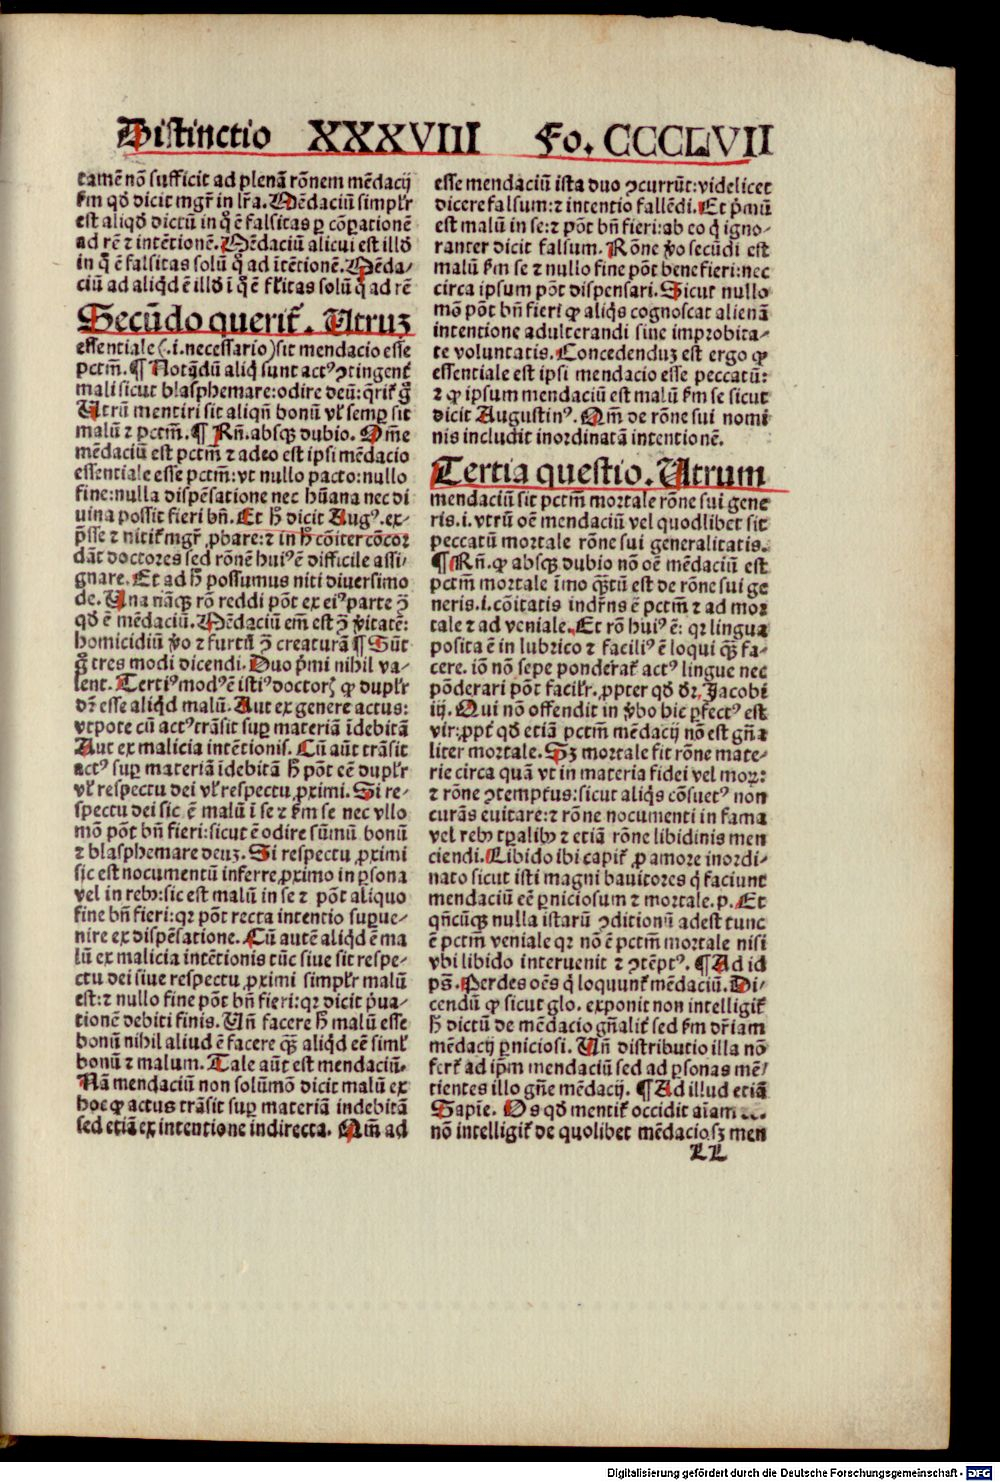 Distinctio XXXVIII Fo. CCCLVII
tamē nō sufficit ad plenā rōnem mēdacij
ẜm qđ dicit mgr̄ in lr̄a. Mēdaciū simplr̄
est aliqđ dictū in q̊ ē falsitas ꝑ cōꝑationē
ad rē ⁊ intētionē. Mēdaciū alicui est illđ
in q̊ ē falsitas solū q̊ ad ītētionē. Mēda-
ciū ad aliqd ē illđ ī q̊ ē fl̄itas solū q̊ ad rē
Secūdo querit̄. Utruꝫ
essentiale (.i. necessario) sit mendacio esse
pctm̄. ¶ Notādū aliq̄ sunt actꝰ ꝯtingent̄
mali sicut blasphemare: odire deū: q̄rit̄ g̊
Utrū mentiri sit aliqn̄ bonū vl̄ semꝑ sit
malū ⁊ pctm̄. ¶ Rn̄. absqꝫ dubio. Om̄e
mēdaciū est pctm̄ ⁊ adeo est ipsi mēdacio
essentiale esse pctm̄: vt nullo pacto: nullo
fine: nulla dispēsatione nec hūana nec di
uina possit fieri bn̄. Et h̄ dicit Augꝰ. ex-
p̄sse ⁊ nitit̄ mgr̄ ꝓbare: ⁊ in h̄ cōiter cōcor
dāt doctores sed rōnē huiꝰ ē difficile assi
gnare. Et ad h̄ possumus niti diuersimo
de. Una nāqꝫ rō reddi pōt ex eiꝰ parte ꝯ̄
qđ ē mēdaciū. Mēdaciū em̄ est ꝯ̄ v̄itatē:
homicidiū v̄o ⁊ furtū ꝯ̄ creaturā ¶ Sūt
g̊ tres modi dicendi. Duo p̄mi nihil va-
lent. Tertiꝰ modꝰ ē istiꝰ doctorꝭ ꝙ duplr̄
dr̄ esse aliqd malū. Aut ex genere actus:
vtpote cū actꝰ trāsit suꝑ materiā īdebitā
Aut ex malicia intētionis. Cū aūt trāsit
actꝰ suꝑ materiā īdebitā h̄ pōt eē duplr̄
vl̄ respectu dei vl̄ respectu ꝓximi. Si re-
spectu dei sic ē malū ī se ⁊ ẜm se nec vllo
mō pōt bn̄ fieri: sicut ē odire sūmū bonū
⁊ blasphemare deuꝫ. Si respectu ꝓximi
sic est nocumentū inferre ꝓximo in ꝑsona
vel in rebꝰ: sic est malū in se ⁊ pōt aliquo
fine bn̄ fieri: qꝛ pōt recta intentio suꝑue-
nire ex dispēsatione. Cū autē aliqd ē ma
lū ex malicia intētionis tūc siue sit respe-
ctu dei siue respectu ꝓximi simplr̄ malū
est: ⁊ nullo fine pōt bn̄ fieri: qꝛ dicit p̄ua-
tionē debiti finis. Un̄ facere h̄ malū esse
bonū nihil aliud ē facere qꝫ̄ aliqd eē siml̄
bonū ⁊ malum. Tale aūt est mendaciū.
Nā mendaciū non solūmō dicit malū ex
hoc ꝙ actus trāsit suꝑ materiā indebitā
sed etiā ex intentione indirecta. Qm̄ ad
esse mendaciū ista duo ꝯcurrūt: videlicet
dicere falsum: ⁊ intentio fallēdi. Et p̄mū
est malū in se: ⁊ pōt bn̄ fieri: ab eo q̇ igno-
ranter dicit falsum. Rōne v̄o secūdi est
malū ẜm se ⁊ nullo fine pōt bene fieri: nec
circa ipsum pōt dispensari. Sicut nullo
mō pōt bn̄ fieri ꝙ aliq̇s cognoscat alienā
intentione adulterandi siue improbita-
te voluntatis. Concedenduꝫ est ergo ꝙ
essentiale est ipsi mendacio esse peccatū:
⁊ ꝙ ipsum mendaciū est malū ẜm se sicut
dicit Augustinꝰ. Qm̄ de rōne sui nomi
nis includit inordinatā intentionē.
Tertia questio. Utrum
mendaciū sit pctm̄ mortale rōne sui gene
ris. i. vtrū oē mendaciū vel quodlibet sit
peccatū mortale rōne sui generalitatis.
¶ Rn̄. ꝙ absqꝫ dubio nō oē mēdaciū est
pctm̄ mortale īmo qꝫ̄tū est de rōne sui ge
neris. i. cōitatis indr̄ns ē pctm̄ ⁊ ad mor
tale ⁊ ad veniale. Et rō huiꝰ ē: qꝛ lingua
posita ē in lubrico ⁊ faciliꝰ ē loqui qꝫ̄ fa-
cere. iō nō sepe ponderat̄ actꝰ lingue nec
pōderari pōt facilr̄. ꝓpter qđ dr̄. Jacobi
iij. Qui nō offendit in v̄bo hic ꝑfectꝰ est
vir: ꝓpt̄ qđ etiā pctm̄ mēdacij nō est gn̄a
liter mortale. Sꝫ mortale fit rōne mate-
rie circa quā vt in materia fidei vel moꝝ:
⁊ rōne ꝯtemptus: sicut aliq̇s cōsuetꝰ non
curās euitare: ⁊ rōne nocumenti in fama
vel rebꝰ tꝑalibꝰ ⁊ etiā rōne libidinis men
ciendi. Libido ibi capit̄ ꝓ amore inordi-
nato sicut isti magni bauitores q̇ faciunt
mendaciū eē ꝑniciosum ⁊ mortale. p. Et
qn̄cūqꝫ nulla istarū ꝯditionū adest tunc
ē pctm̄ veniale qꝛ nō ē pctm̄ mortale nisi
vbi libido interuenit ⁊ ꝯtēptꝰ. ¶ Ad id
ps̄. Perdes oēs q̇ loquunt̄ mēdaciū. Di-
cendū ꝙ sicut glo. exponit non intelligit̄
h̄ dictū de mēdacio gn̄alit̄ sed ẜm dr̄iam
mēdacij ꝑniciosi. Un̄ distributio illa nō
fert̄ ad ip̄m mendaciū sed ad ꝑsonas mē-
tientes illo gn̄e mēdacij. ¶ Ad illud etiā
Sapīe. Os qđ mentit̄ occidit aīam
nō intelligit̄ de quolibet mēdacio sꝫ men
LL
Digitalisierung gefördert durch die Deutsche Forschungsgemeinschaft - DFG